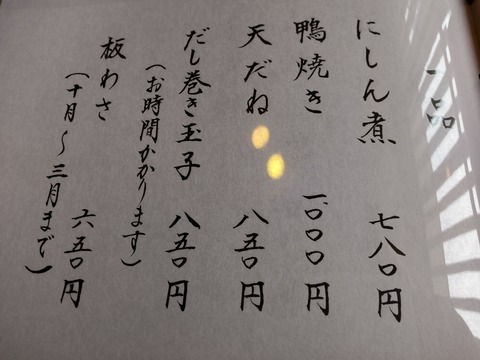 一品
にしん煮 七八〇円
鴨焼き 一、〇〇〇円
天だね 八五〇円
だし巻き玉子 八五〇円
(お時間かかります)
板わさ 六五〇円
(十月〜三月まで)